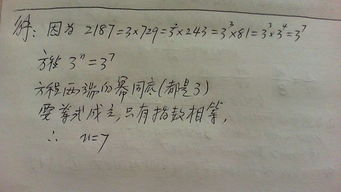 解：因为 2187=3×729=3²×243=3³×81=3³×3⁴=3⁷
方程 3ⁿ=3⁷
方程两端的幂同底(都是3)
要等式成立，只有指数相等，
∴ n=7